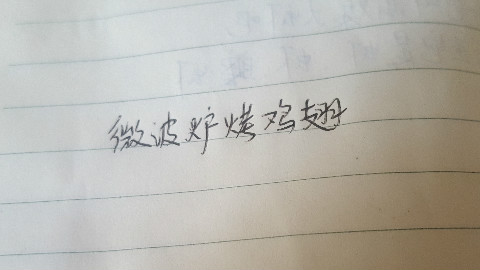 微波炉烤鸡翅